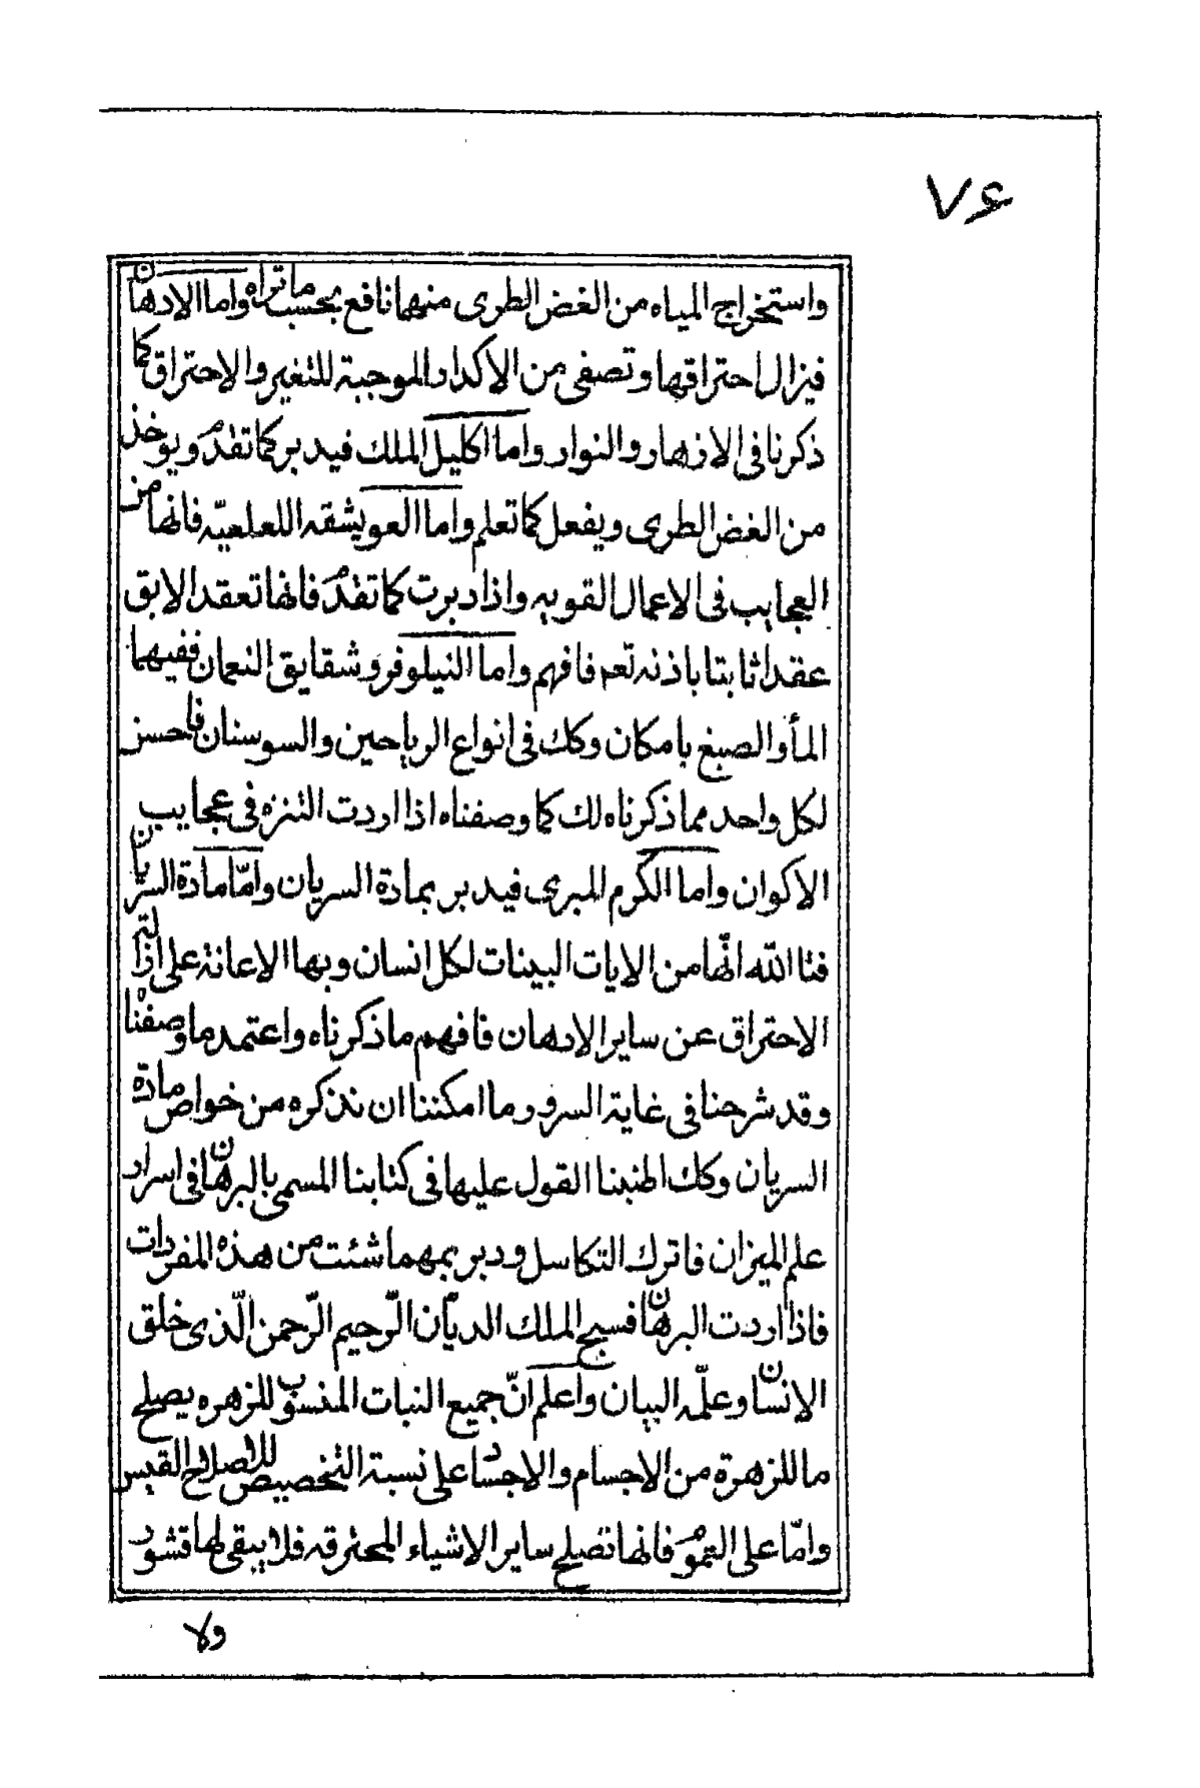 ٧٦
واستخراج المياه من الغض الطرى منهما نافع بحسب ماتراه واما الادهان
فيزال احتراقها وتصفى من الاكدار الموجبة للتغير والاحتراق كما
ذكرنا فى الازهار والنوار واما اكليل الملك فيدبر كما تقدم ويوخذ
من الغض الطرى ويفعل كما تعلم واما العويشقه اللعلعيّه فانها من
العجايب فى الاعمال القويه واذا دبرت كما تقدم فانها تعقد الابق
عقدا ثابتا باذنه تعه فافهم واما النيلوفر وشقايق النعمان ففيهما
المأ والصبغ بامكان وكك فى انواع الرياحين والسوسنان فاحسن
لكل واحد مما ذكرناه لك كما وصفناه اذا اردت التنزه فى عجايب
الاكوان واما الكرم المبرى فيدبر بمادة السريان وامّا مادة السريان
فتا الله انّها من الايات البينات لكل انسان وبها الاعانة على ازالته
الاحتراق عن ساير الادهان فافهم ما ذكرناه واعتمد ما وصفناه
وقد شرحنا فى غاية السرور ما امكننا ان نذكره من خواص مادة
السريان وكك اطنبنا القول عليها فى كتابنا المسمى بالبرهان فى اسرار
علم الميزان فاترك التكاسل ودبر بمهما شئت من هذه المفردات
فاذا اردت البرهان فسبح الملك الديّان الرّحيم الرّحمن الّذى خلق
الانسان وعلّمه البيان واعلم انّ جميع النبات المنسوب للزهره يصلح
ما للزهرة من الاجسام والاجساد على نسبة التخصيص للاصلاح القيس
وامّا على العموم فانها تصلح ساير الاشياء المحترقه فلا يبقى لها قشور
ولا